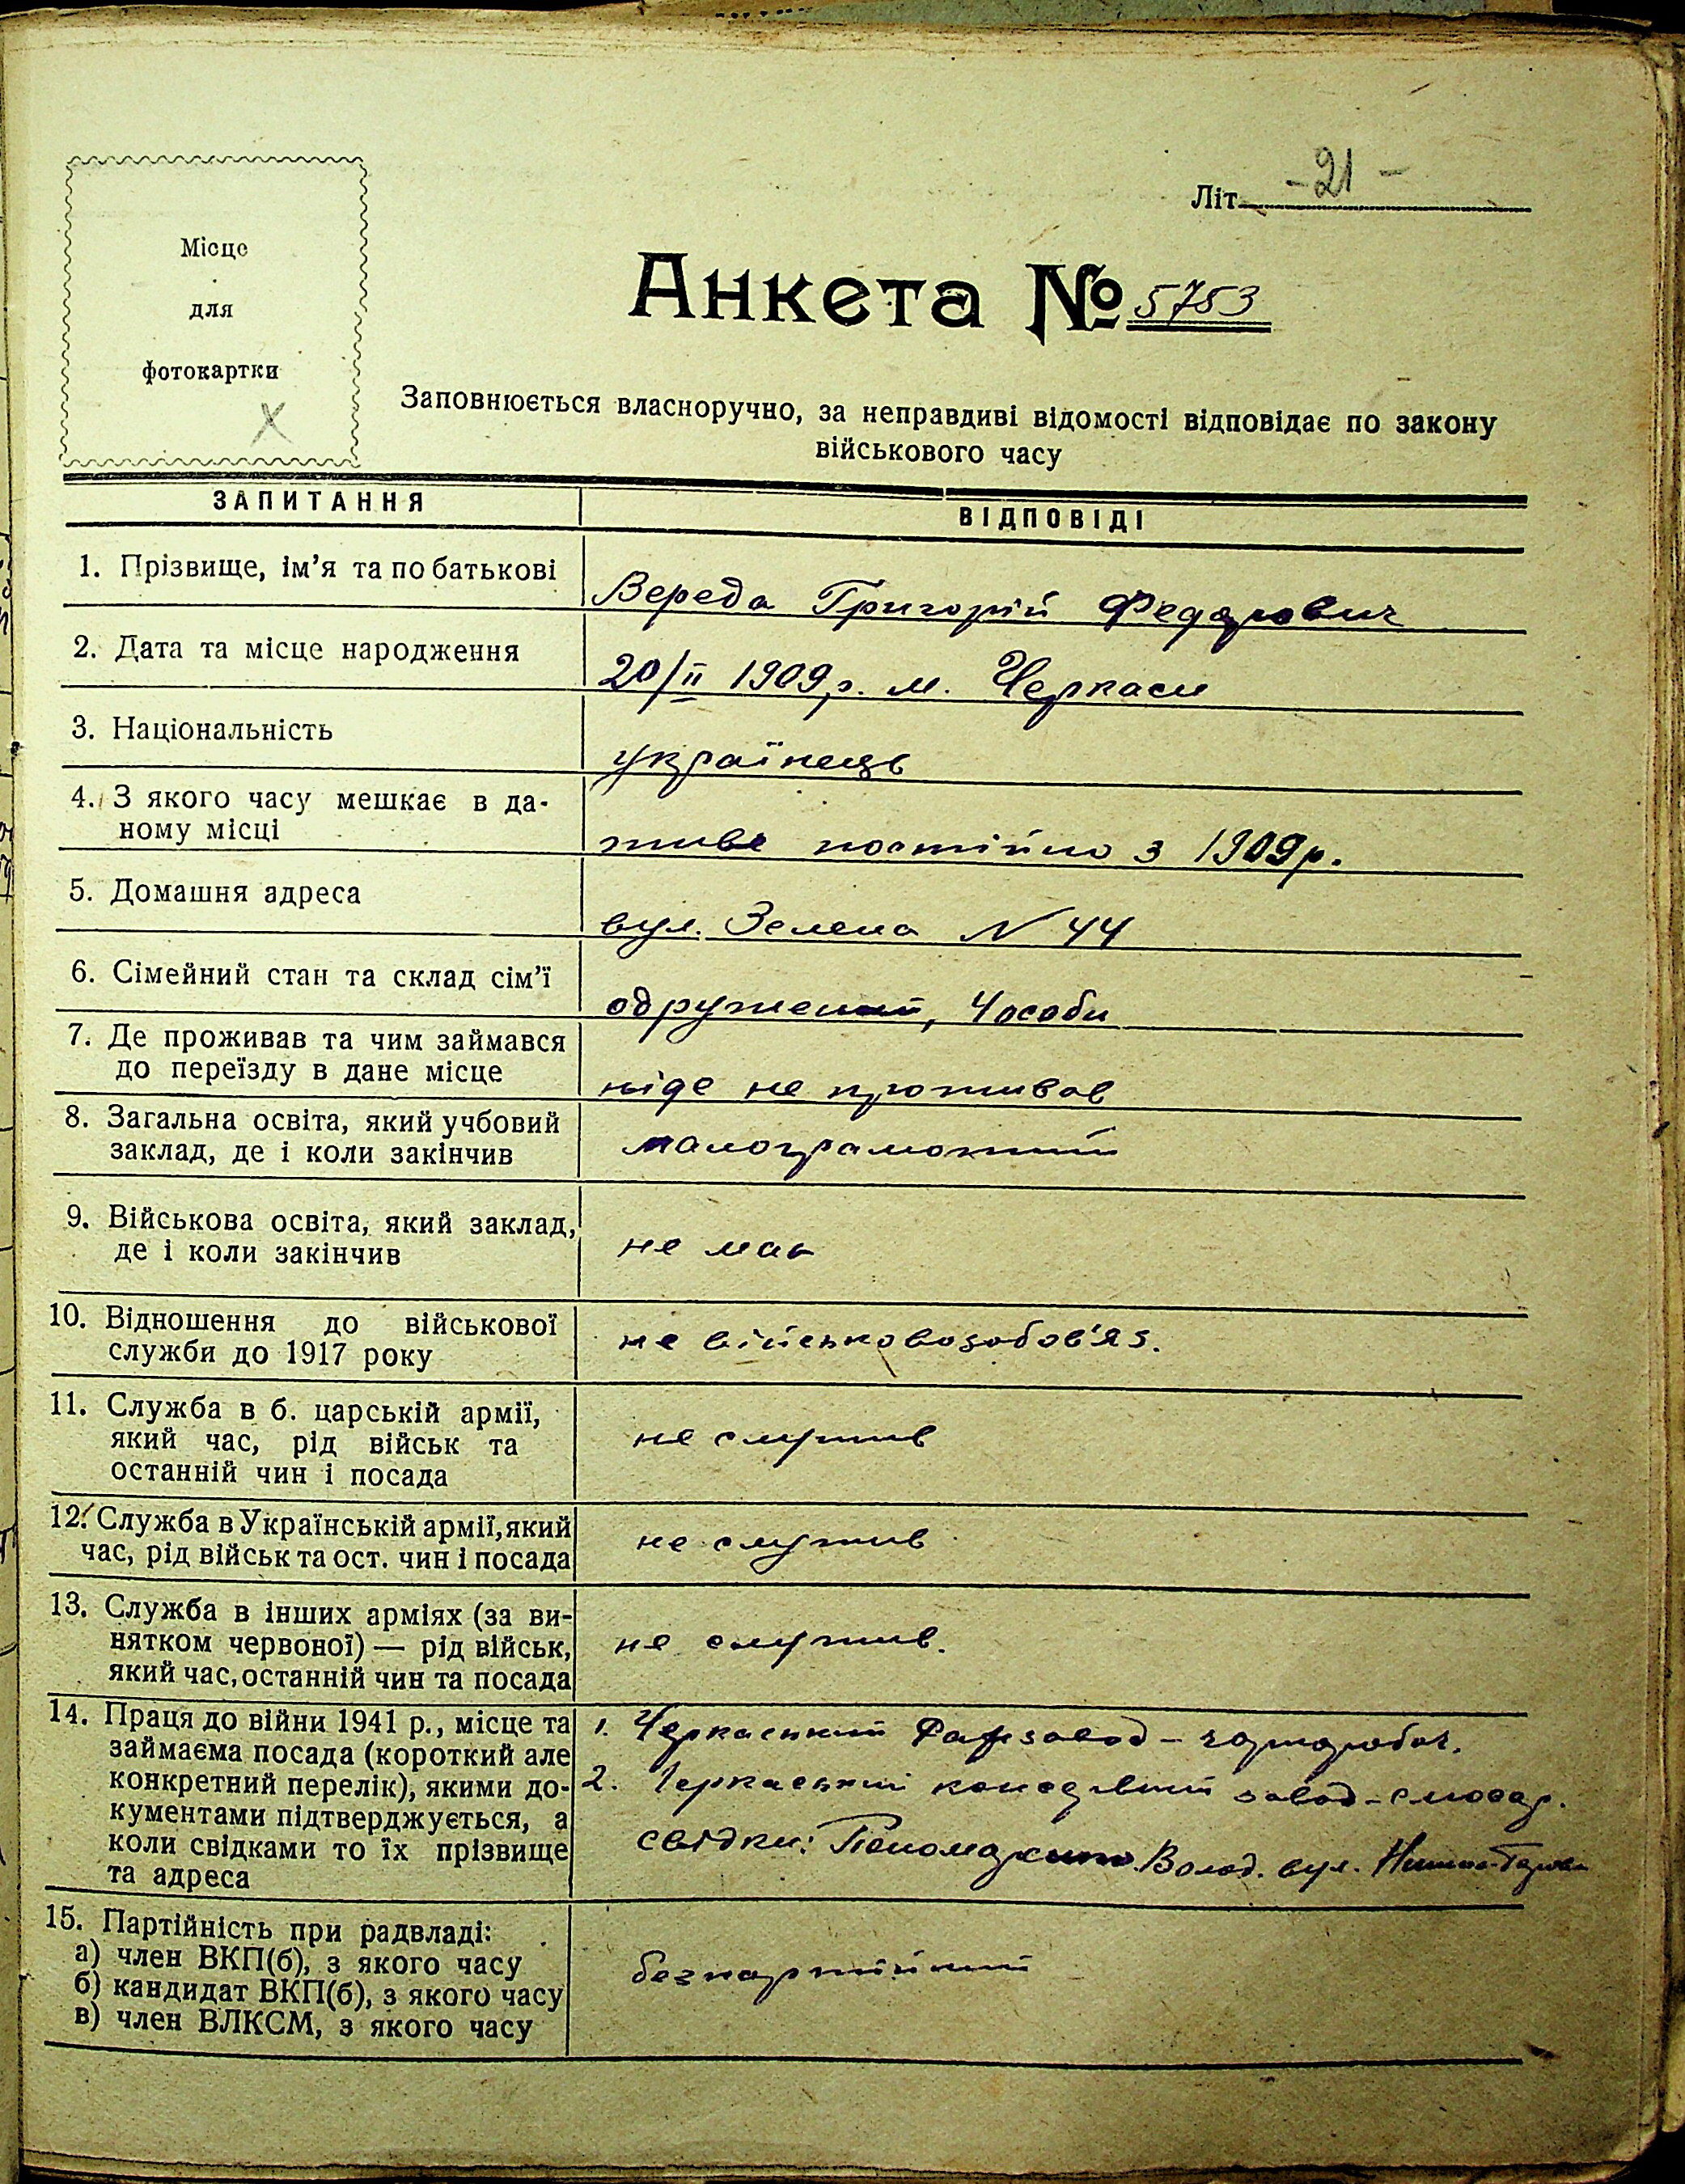 Літ. -21-
Місце
для
фотокартки
Анкета № 5753
Заповнюється власноручно, за неправдиві відомості відповідає по закону
військового часу
ЗАПИТАННЯ
ВІДПОВІДІ
1. Прізвище, ім’я та по батькові
Вереда Григорій Федорович
2. Дата та місце народження
20/II 1909 р. м. Черкаси
3. Національність
українець
4. З якого часу мешкає в да-
ному місці
живе постійно з 1909 р.
5. Домашня адреса
вул. Зелена N 44
6. Сімейний стан та склад сім’ї
одружений, 4 особи
7. Де проживав та чим займався
до переїзду в дане місце
ніде не проживав
8. Загальна освіта, який учбовий
заклад, де і коли закінчив
малограмотний
9. Військова освіта, який заклад,
де і коли закінчив
не має
10. Відношення до військової
служби до 1917 року
не військовозобов'яз.
11. Служба в б. царській армії,
який час, рід військ та
останній чин і посада
не служив
12. Служба в Українській армії, який
час, рід військ та ост. чин і посада
не служив
13. Служба в інших арміях (за ви-
нятком червоної) — рід військ,
який час, останній чин та посада
не служив.
14. Праця до війни 1941 р., місце та
займаєма посада (короткий але
конкретний перелік), якими до-
кументами підтверджується, а
коли свідками то їх прізвище
та адреса
1. Черкаський Рафзавод - чорнороб.
2. Черкаський консервний завод - слюсар.
свідки: Пономаренко Волод. вул.
15. Партійність при радвладі:
а) член ВКП(б), з якого часу
б) кандидат ВКП(б), з якого часу
в) член ВЛКСМ, з якого часу
безпартійний